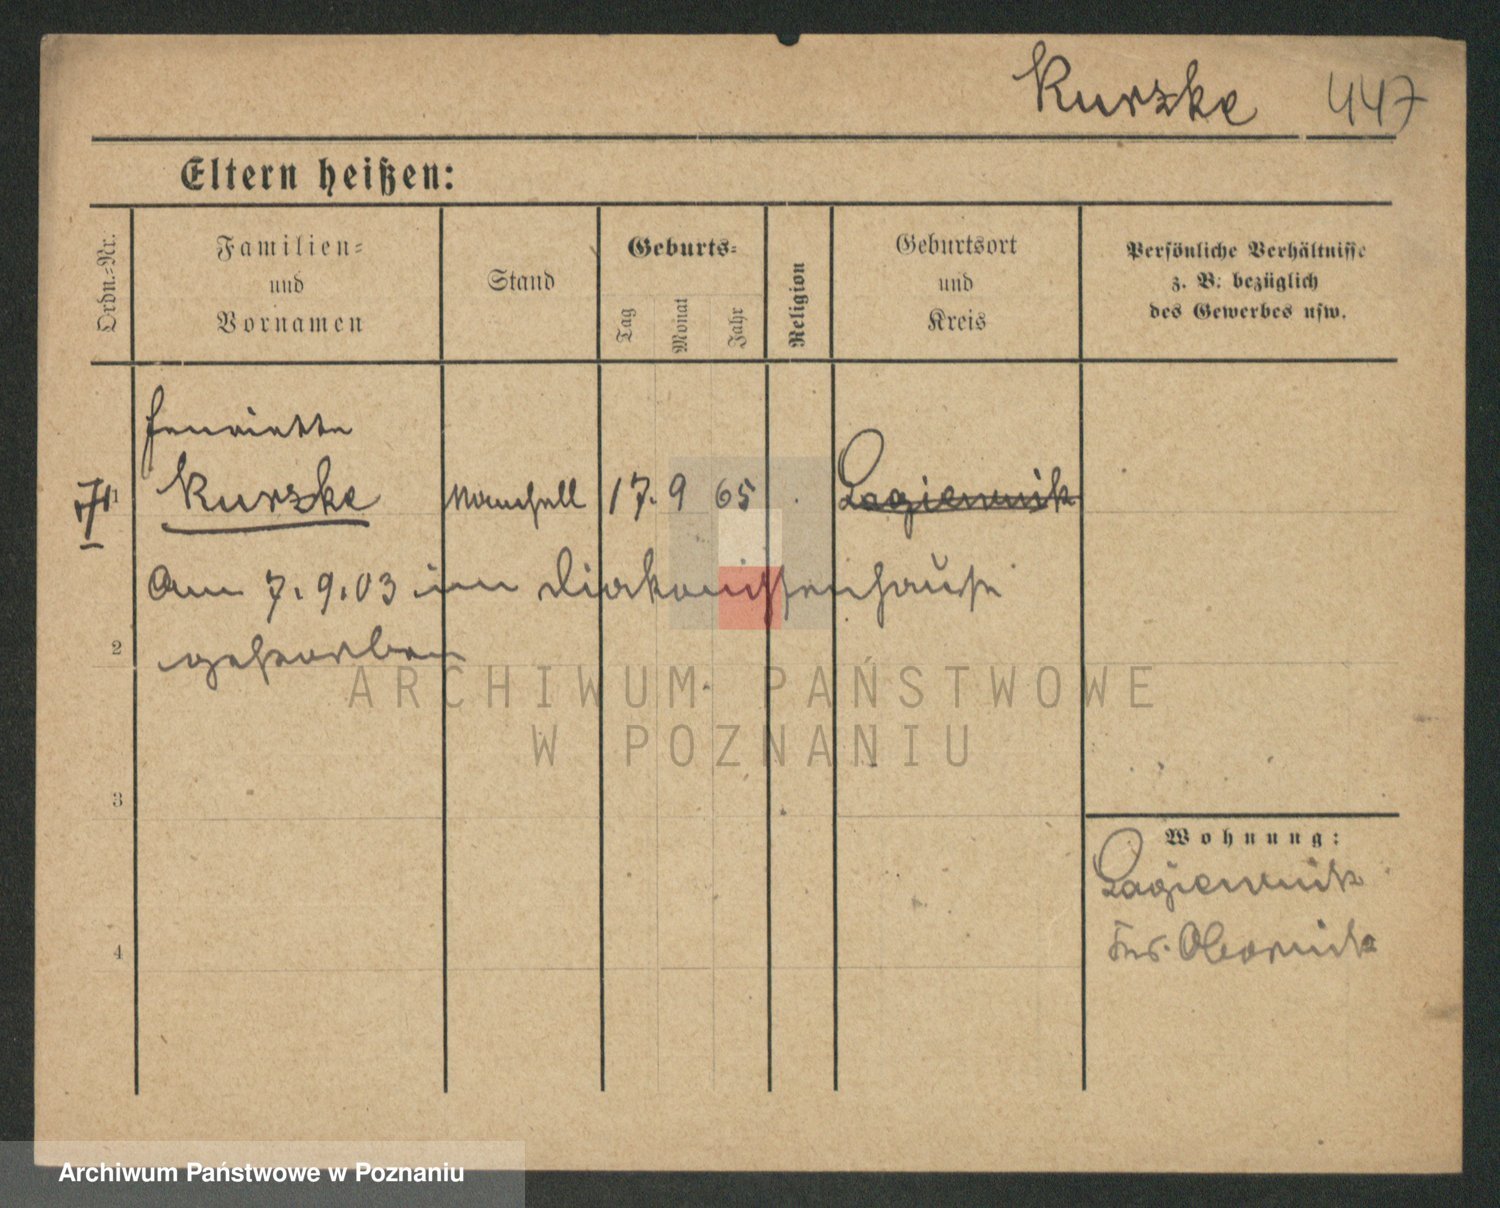 Kurzke 447
Eltern heißen:
Ordn.=Nr.
Familien=
und
Vornamen
Stand
Geburts=
Tag
Monat
Jahr
Religion
Geburtsort
und
Kreis
Persönliche Verhältnisse
z. B. bezüglich
des Gewerbes usw.
Henriette
1 Kurzke Mamsell 17. 9 65 Lagiewnik
Am 7.9.03 im Diakonissenhause
2 gestorben
ARCHIWUM PAŃSTWOWE
W POZNANIU
3
Wohnung:
Lagiewnik
4 Krs. Obornik
Archiwum Państwowe w Poznaniu